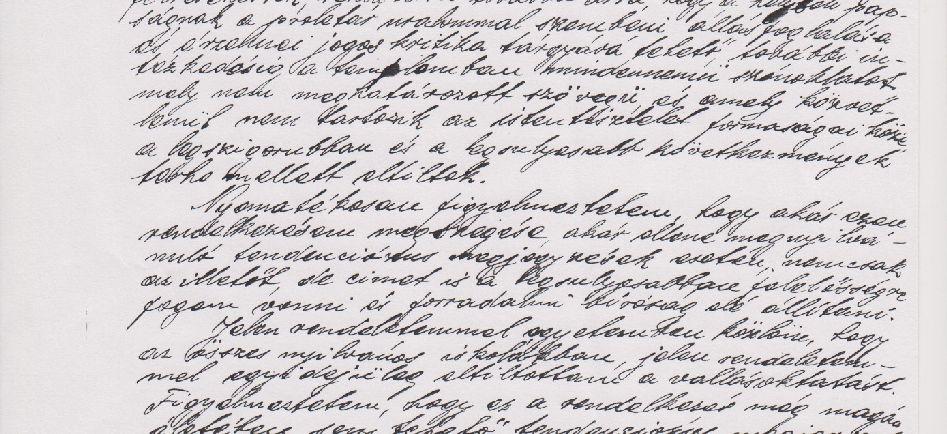 ságnak a proletár uralommal szembeni állásfoglalása
és érzelmei jogos kritika tárgyává tehető, további in-
tézkedésig a templomban mindennemű szónoklatot
mely nem meghatározott szövegű és amely közvet-
lenül nem tartozik az istentisztelet formaságai közé
a legszigorubban és a legsulyosabb következmények
terhe mellett eltiltok.
Nyomatékosan figyelmeztetem, hogy akár ezen
rendelkezésem megszegése, akár ellene megnyilvá-
nuló tendenciózus megjegyzések esetén, nemcsak
az illetőt, de címet is a legsulyosabban felelősségre
fogom vonni és forradalmi bíróság elé állítani.
Jelen rendeletemmel egyetemben közlöm, hogy
az összes nyilvános iskolákban, jelen rendeletem-
mel egyidejűleg eltiltottam a vallásoktatást.
Figyelmeztetem, hogy ez a rendelkezés még magán